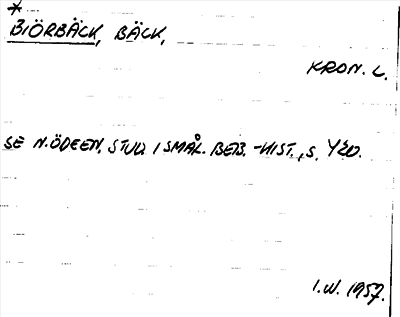 *
BIÖRBÄCK, BÄCK,
KRON. L.
SE N. ÖDEEN, STUD. I SMÅL. BEB.-HIST., S. 420.
I.W. 1957.